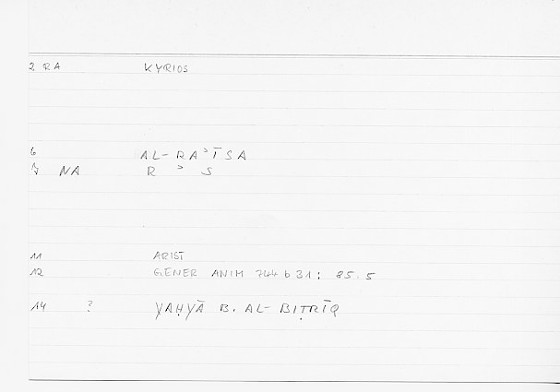 2 RA KYRIOS
6 AL-RAʾĪSA
7 NA R ʾ S
11 ARIST
12 GENER ANIM 744 b 31: 85.5
14 ? YAḤYĀ B. AL-BIṬRĪQ